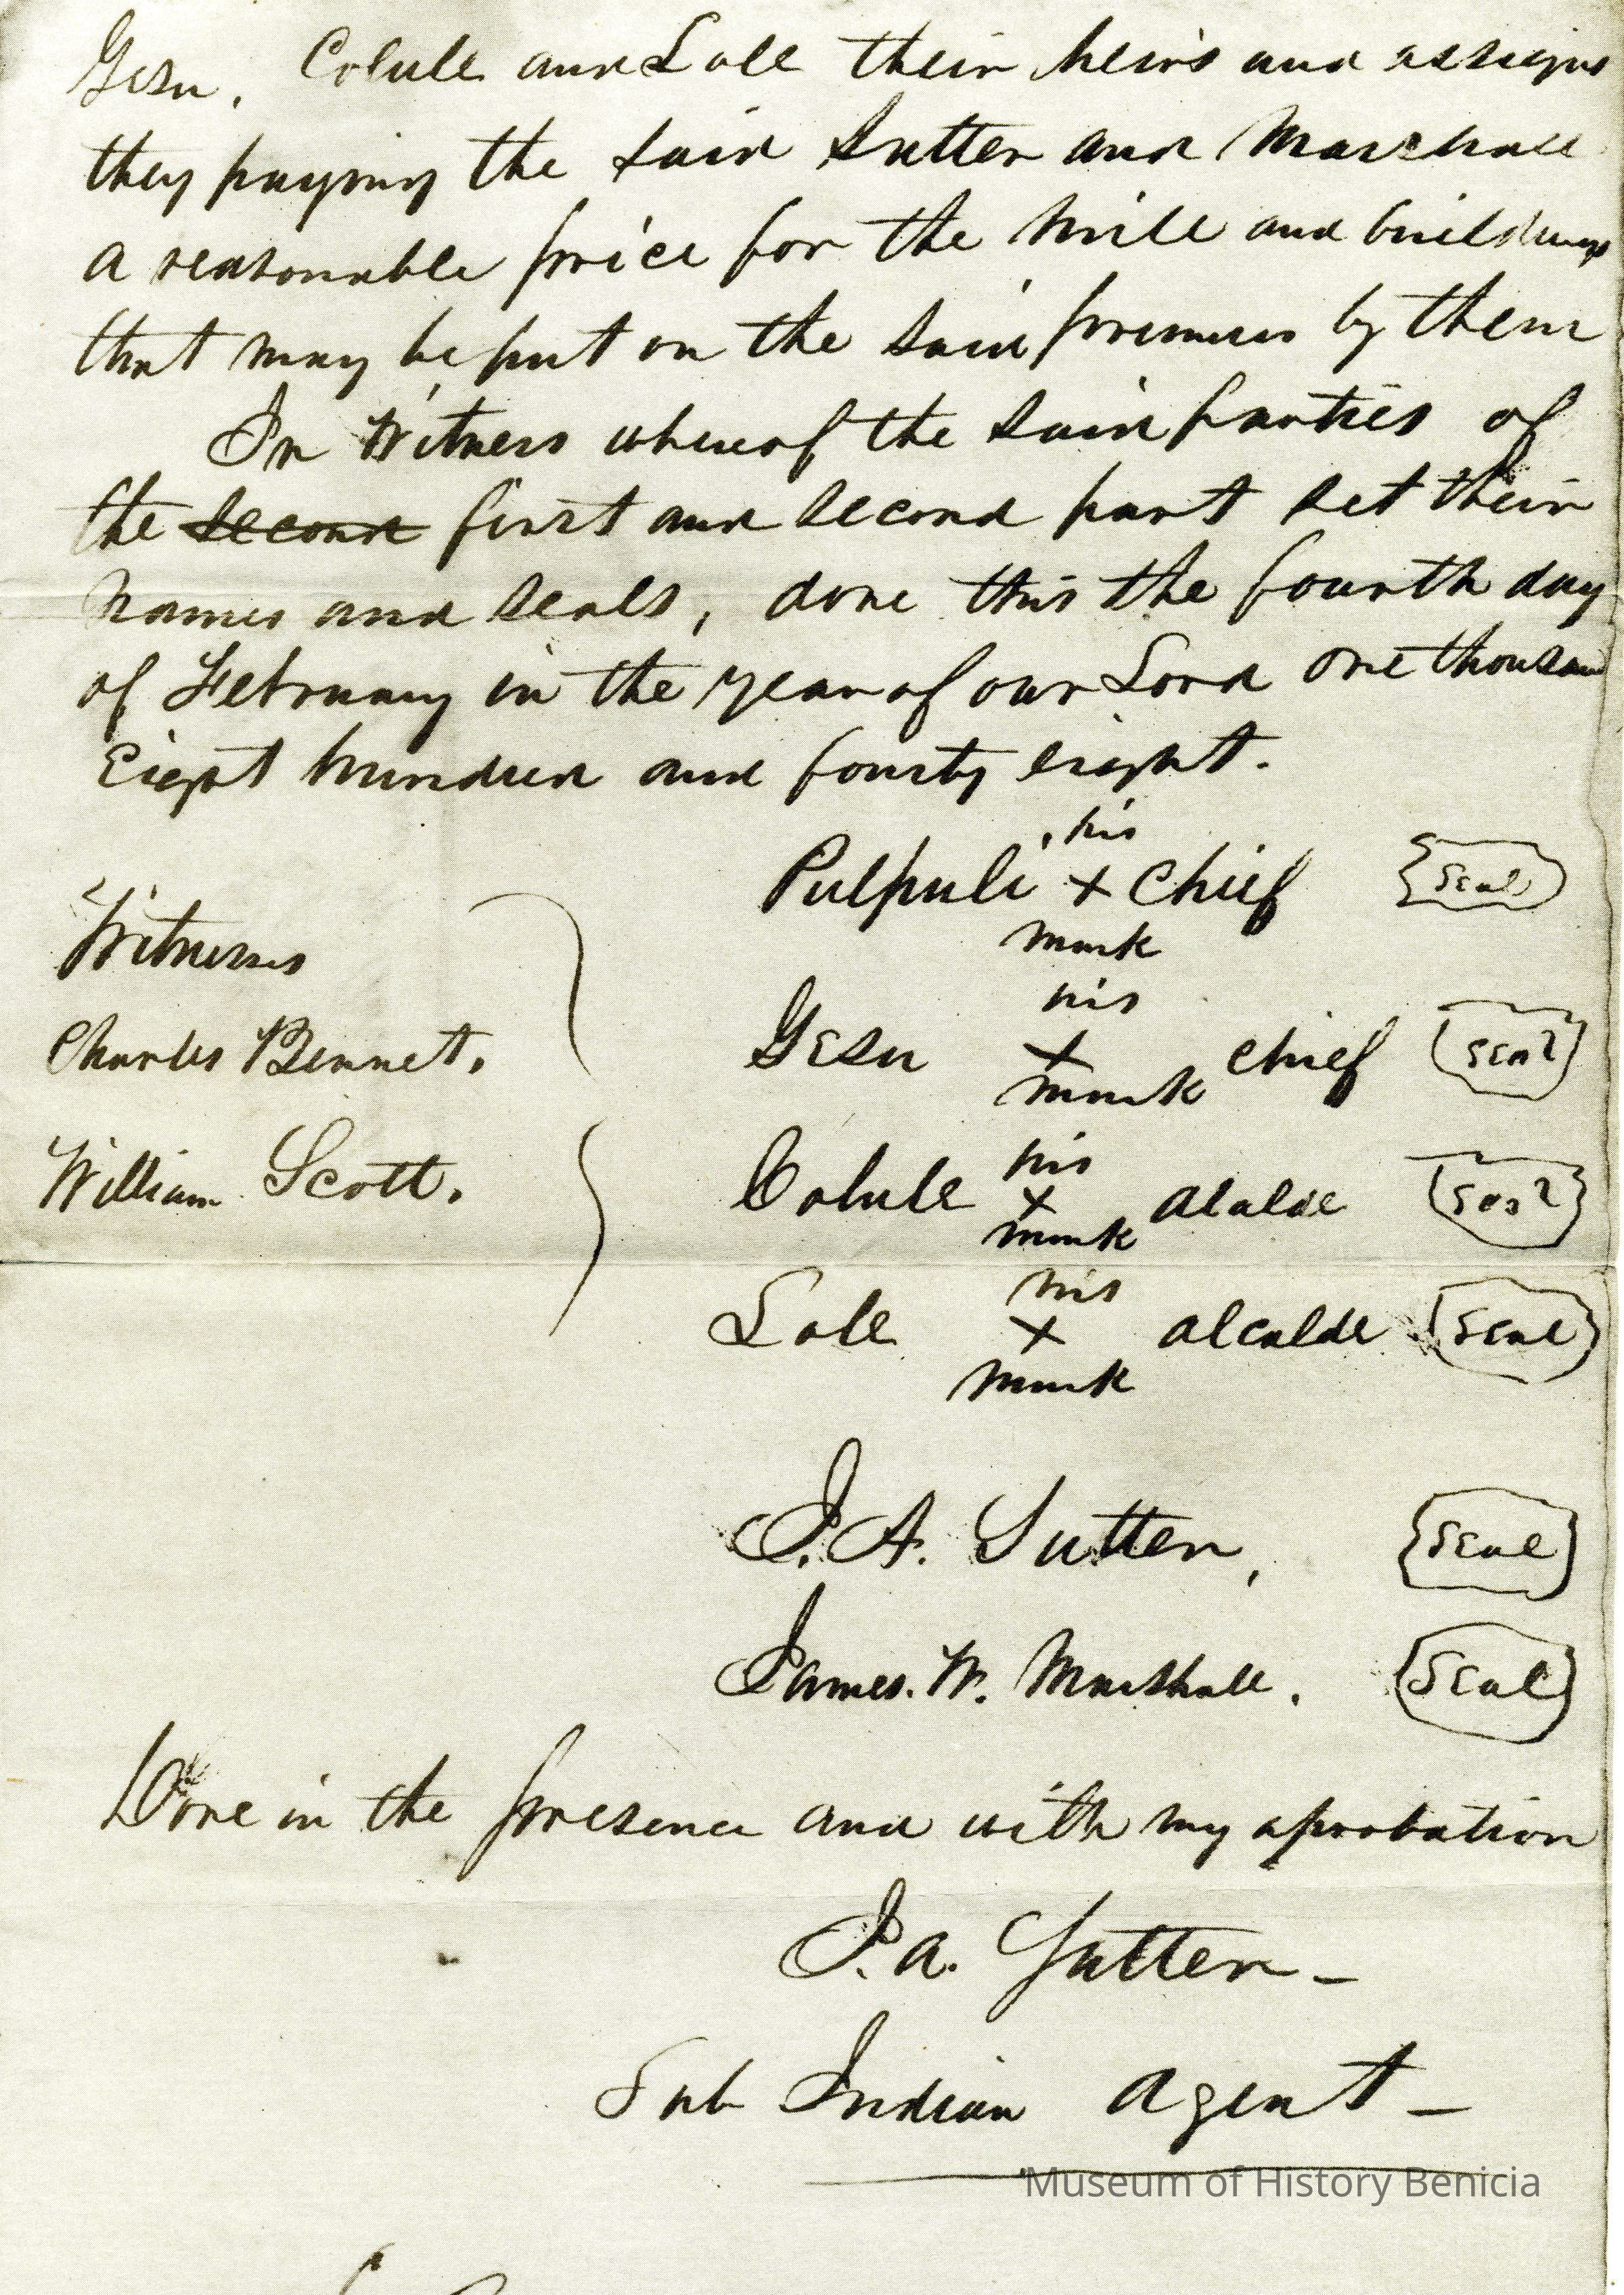 Gesu, Colule and Sole their heirs and assigns
they paying the said Sutter and Marshall
a reasonable price for the Mill and buildings
that may be put on the said premises by them
In Witness whereof the said parties of
the second first and second part set their
names and seals, done this the fourth day
of February in the year of our Lord one thousand
Eight hundred and fourty eight.
Pulpuli his x mark Chief Seal
Witnesses
Gesu his x mark chief Seal
Charles Bennet.
Colule his x mark alalde Seal
William Scott.
Sole his x mark alcalde Seal
J. A. Sutter, Seal
James. W. Marshall. Seal
Done in the presence and with my aprobation
J. A. Sutter -
Sub Indian Agent -
Museum of History Benicia